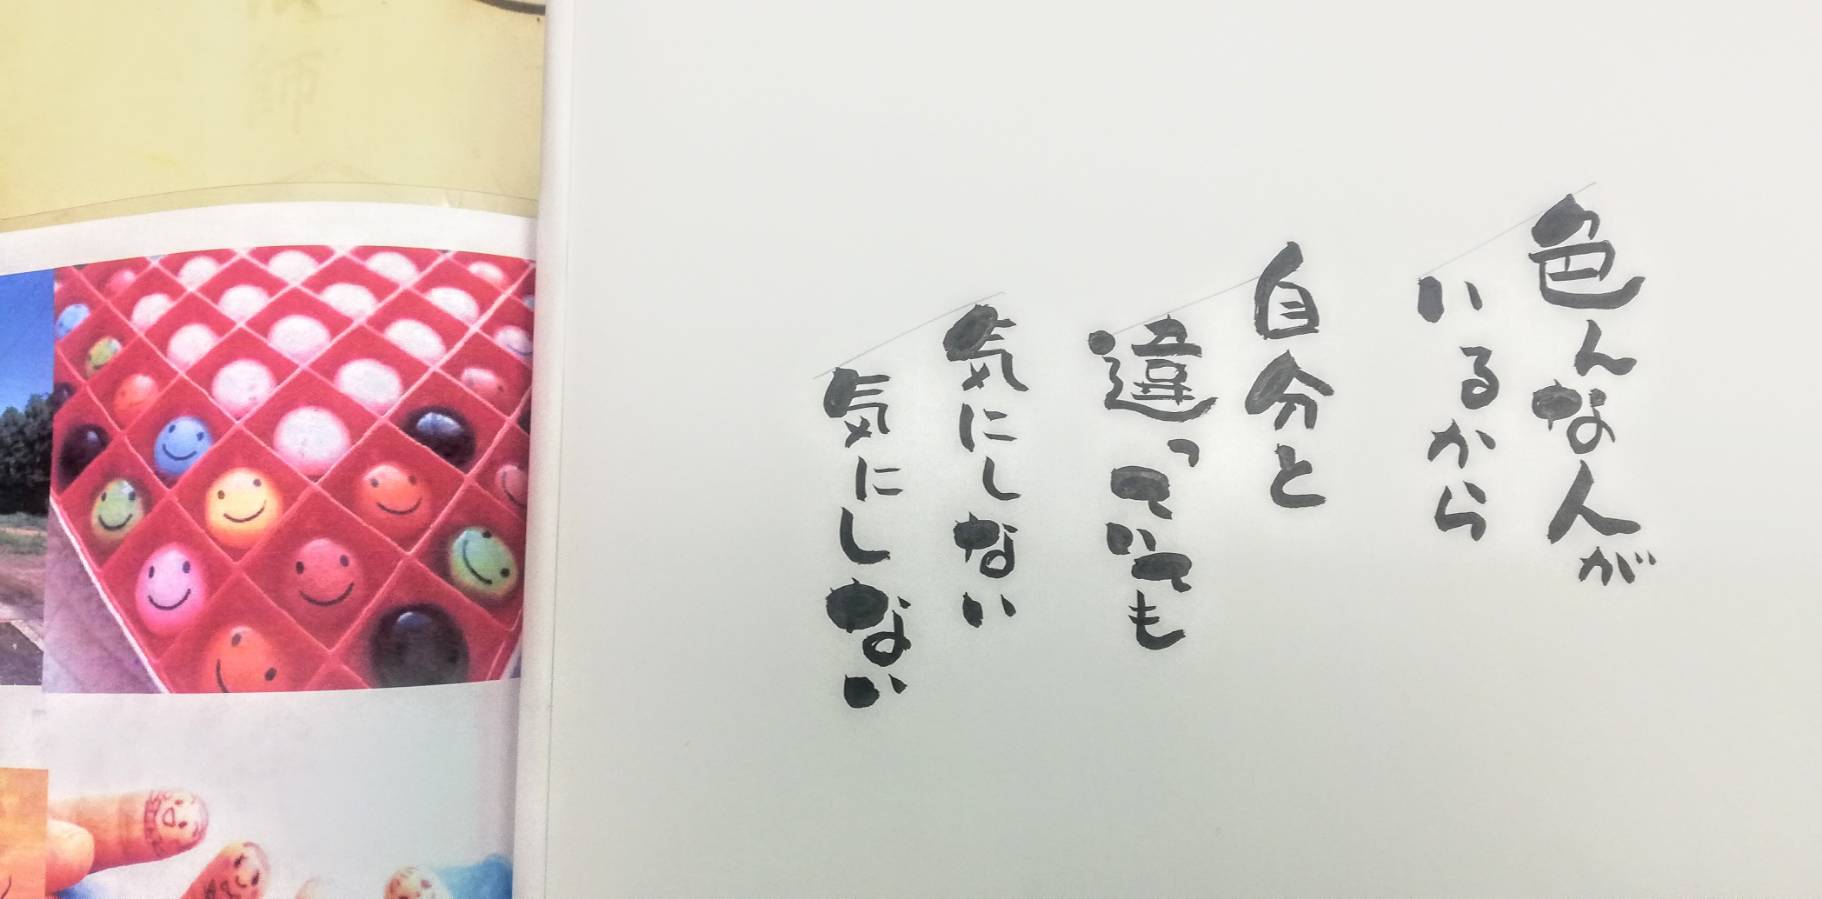 色んな人が
いるから
自分と
違っていても
気にしない
気にしない